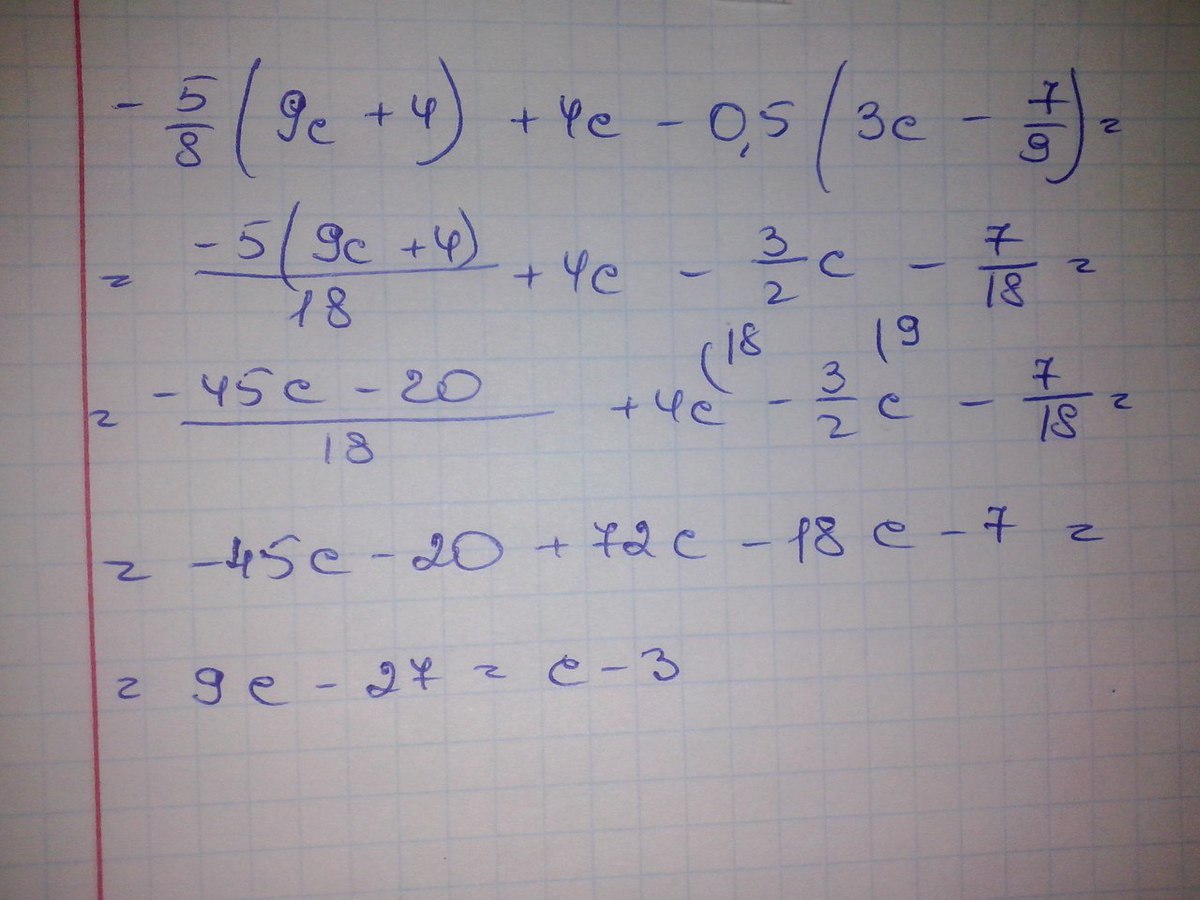 - 5/8 (9c + 4) + 4c - 0,5 (3c - 7/9) =
= -5(9c + 4)/18 + 4c - 3/2 c - 7/18 =
= -45c - 20/18 + 4c (18 - 3/2 c (9 - 7/18 =
= -45c - 20 + 72c - 18c - 7 =
= 9c - 27 = c - 3